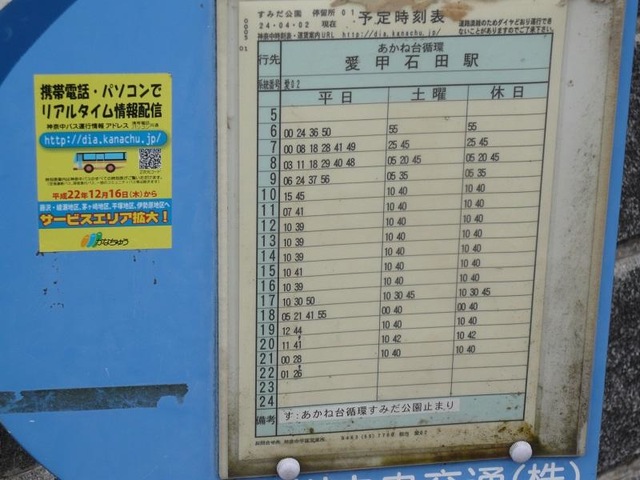 携帯電話・パソコンで
リアルタイム情報配信
神奈中バス運行情報 アドレス
http://dia.kanachu.jp/
平成22年12月16日(木)から
藤沢・綾瀬地区、茅ヶ崎地区、平塚地区、伊勢原地区へ
サービスエリア拡大!
かなちゅう
0005
01
すみだ公園 停留所 01 予定時刻表
24-04-02 現在
神奈中時刻表・運賃案内URL http://dia.kanachu.jp/
道路混雑のためダイヤどおり運行で
きないことがありますのでご了承下さい
行先 あかね台循環
愛甲石田駅
系統番号 愛02
平日 土曜 休日
5
6 00 24 36 50 55 55
7 00 08 18 28 41 49 25 45 25 45
8 03 11 18 29 40 48 05 20 45 05 20 45
9 06 24 37 56 05 35 05 35
10 15 45 10 40 10 40
11 07 41 10 40 10 40
12 10 39 10 40 10 40
13 10 39 10 40 10 40
14 10 39 10 40 10 40
15 10 41 10 40 10 40
16 10 39 10 40 10 40
17 10 30 50 10 30 45 10 30 45
18 05 21 41 55 00 40 00 40
19 12 44 10 40 10 40
20 11 41 10 42 10 42
21 00 28 10 40 10 40
22 01 26
23
24
備考 す:あかね台循環すみだ公園止まり